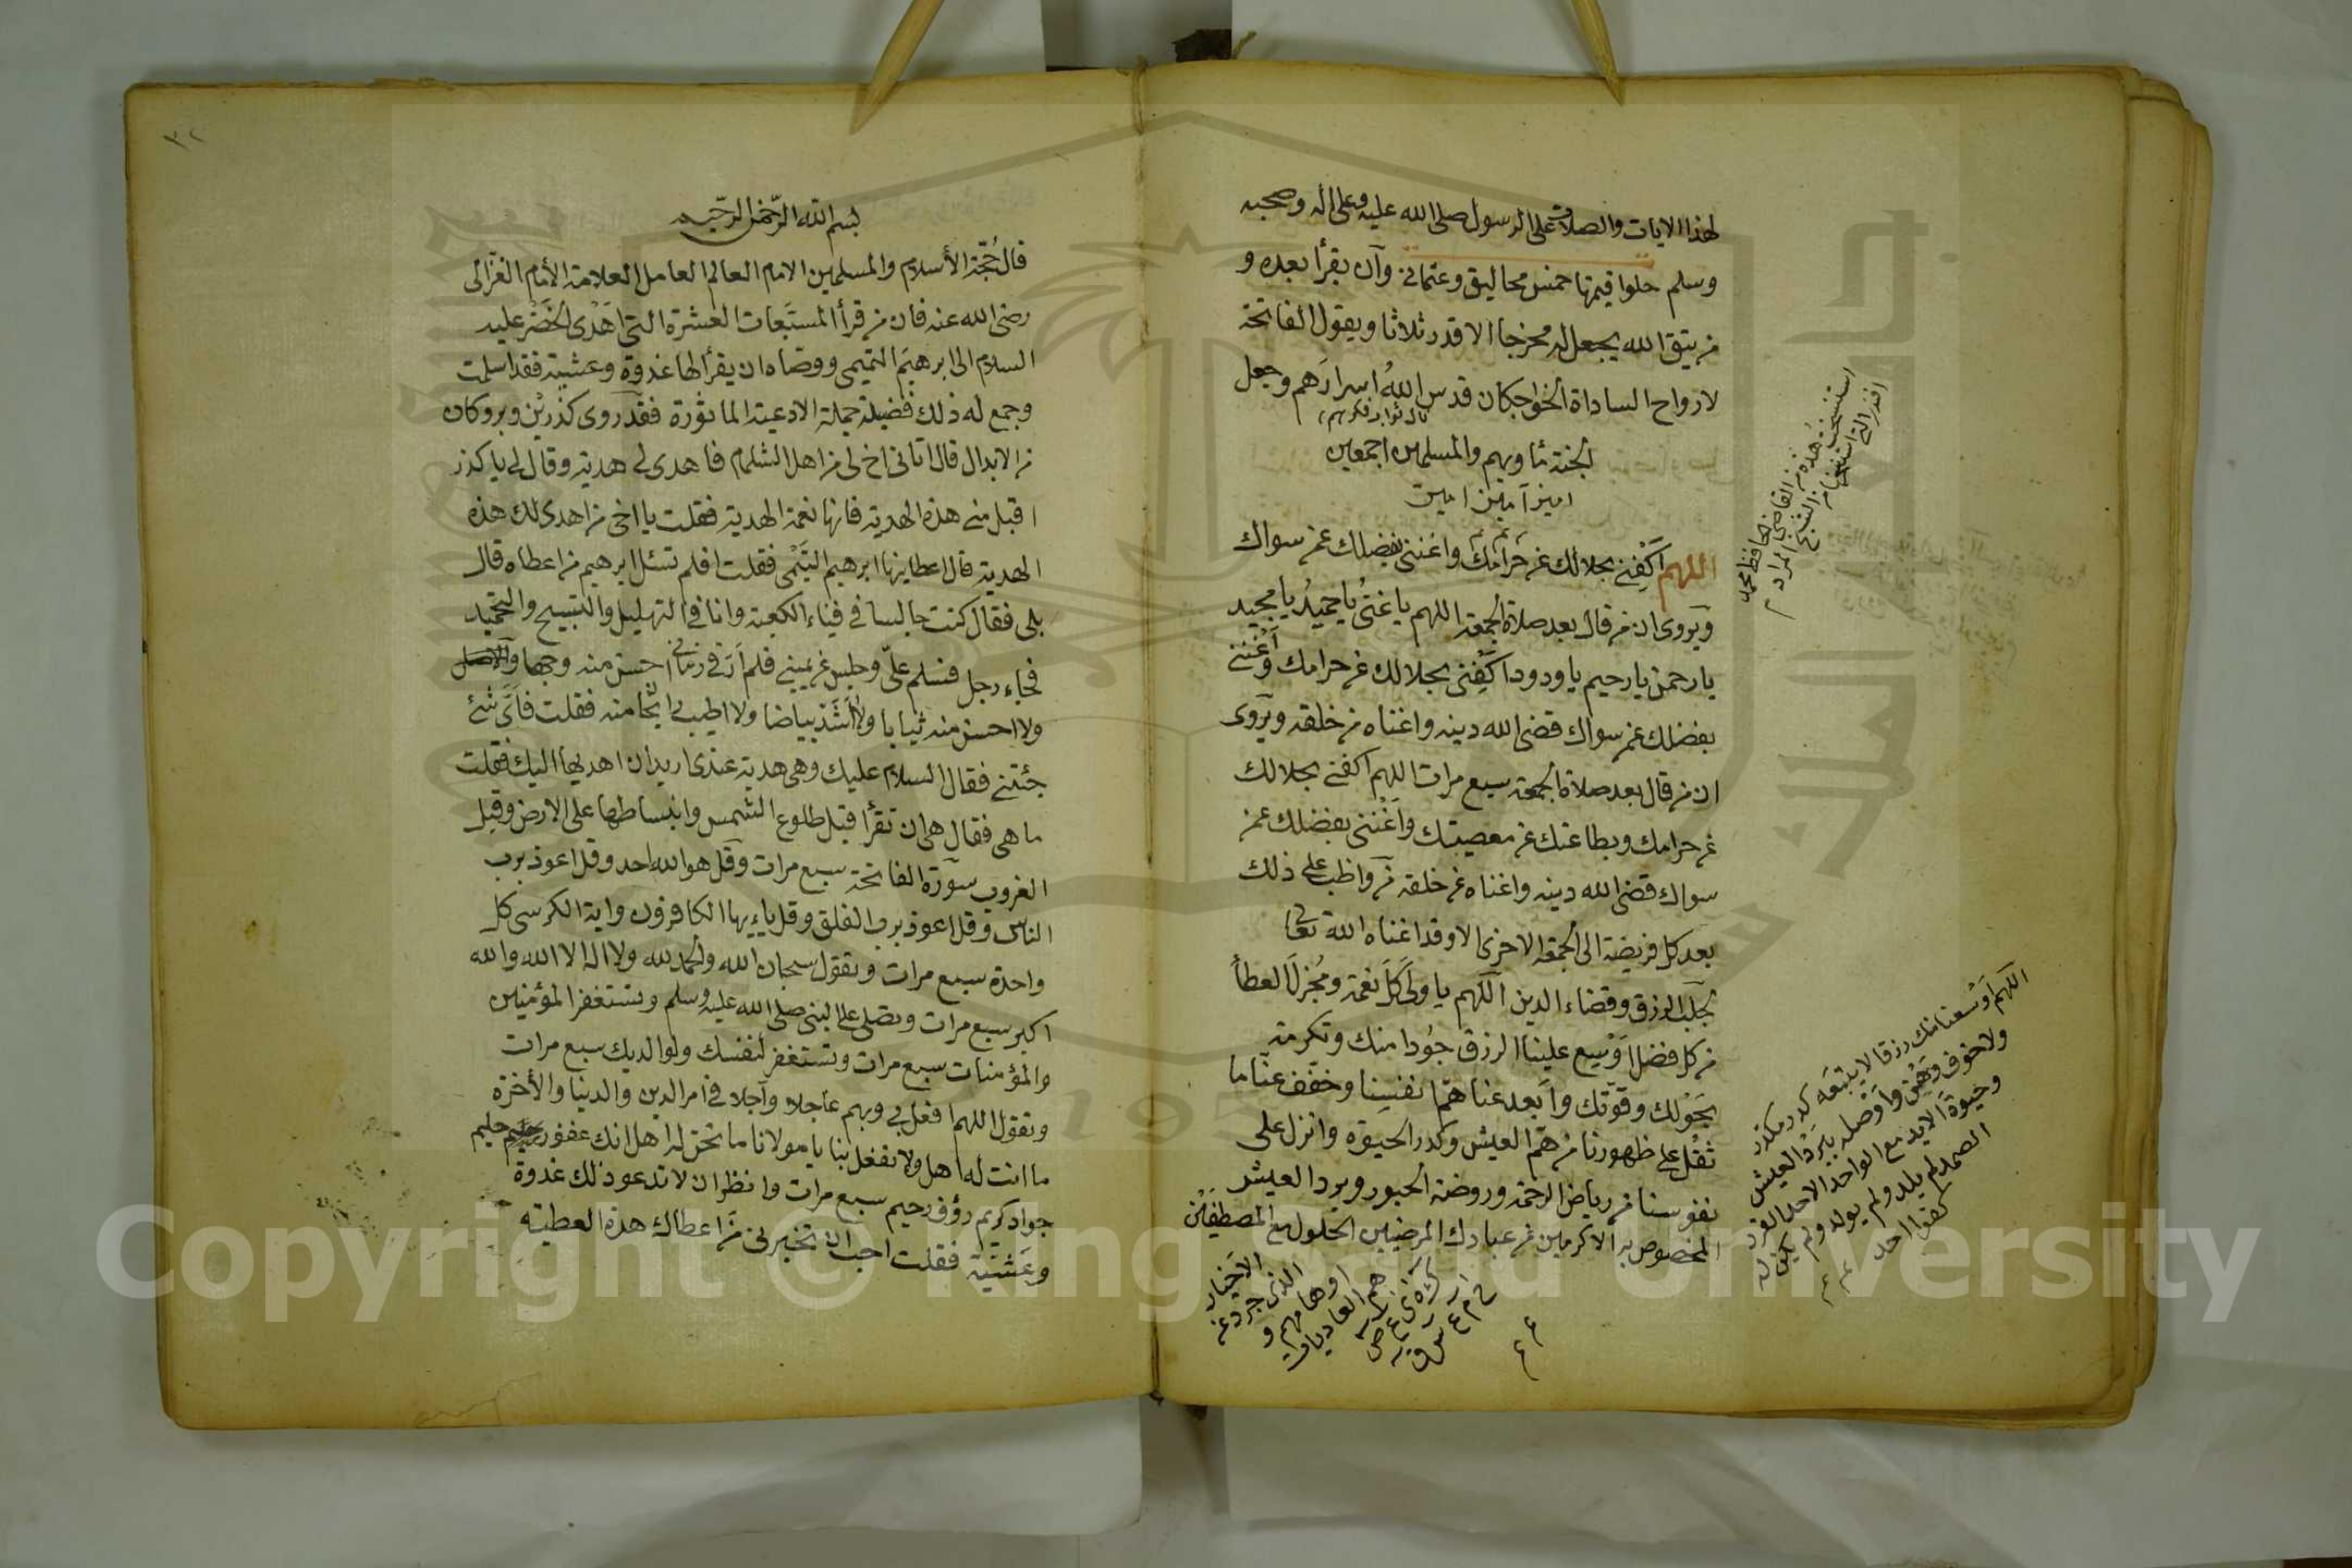 لهذا الايات والصلاة على الرسول صلى الله عليه وعلى اله وصحبه
وسلم حلوا قيمتها خمس محاليق وعثماني وآن يقرأ بعده و
من يتق الله يجعل له مخرجا الا قدر ثلاثا ويقول الفاتحة
لارواح الساداة الخواجكان قدس الله اسرارهم وجعل
الجنة مأويهم والمسلمين اجمعين
امين آمين امين
اللهم اكفني بحلالك عن حرامك واغنني بفضلك عمن سواك
ويروى ان من قال بعد صلاة الجمعة اللهم يا غني يا حميد يا مجيد
يا رحمن يا رحيم يا ودود اكفني بحلالك عن حرامك وأغنني
بفضلك عمن سواك قضى الله دينه واغناه من خلقه ويروى
ان من قال بعد صلاة الجمعة سبع مرات اللهم اكفني بحلالك
عن حرامك وبطاعتك عن معصيتك وأغنني بفضلك عمن
سواك قضى الله دينه واغناه عن خلقه من واظب على ذلك
بعد كل فريضة الى الجمعة الاخرى الا وقد اغناه الله تعالى
لجلب الرزق وقضاء الدين اللهم يا ولي كل نعمة ومجزل العطأ
من كل فضل اوسع علينا الرزق جودا منك وتكرمة
بحولك وقوتك وأبعد عنا هم انفسنا وخفف عنا ما
ثقل على ظهورنا من هم العيش وكدر الحيوة وانزل على
نفوسنا من رياض الرحمة وروضة الحبور وبرد العيش
المخصوص به الاكرمين من عبادك المرضيين الحلول مع المصطفين
الاخيار
استنسخت هذه من القاضي الحافظ محمد
افندي التي استنسخها من الشيخ المراد
اللهم اوسعنا منك رزقا لا يتبعه كدر مكدر
ولا خوف وهين وأوصله ببرد العيش
وحيوة الابد مع الواحد الاحد الفرد
الصمد لم يلد ولم يولد ولم يكن له
كفوا احد
٣٢
بسم الله الرحمن الرحيم
قال حجة الأسلام والمسلمين الامام العالم العامل العلامة الأمام الغزالى
رضى الله عنه فان من قرأ المسبعات العشرة التى اهدى الخضر عليه
السلام الى ابرهيم التيمى ووصاه ان يقرأ لها غدوة وعشية فقد اسلمت
وجمع له ذلك فضيلة جملة الادعية الماثورة فقد روى كذر بن وبر وكان
من الابدال قال اتانى اخ لى من اهل الشام فاهدى لي هدية وقال لي يا كذر
اقبل مني هذه الهدية فانها نعمة الهدية فقلت يا اخى من اهدى لك هذه
الهدية قال اعطانيها ابرهيم التيمى فقلت افلم تسئل ابرهيم من اعطاه قال
بلى فقال كنت جالسا في فناء الكعبة وانا في التهليل والتسبيح والتحميد
فجاء رجل فسلم علي وجلس عن يميني فلم أر في زماني احسن منه وجها
ولا احسن منه ثيابا ولا أشد بياضا ولا اطيب ريحا منه فقلت فأي شئ
جئتني فقال السلام عليك وهى هدية عندى اريد ان اهديها اليك فقلت
ما هى فقال هى ان تقرأ قبل طلوع الشمس وانبساطها على الارض وقبل
الغروب سورة الفاتحة سبع مرات وقل هو الله احد وقل اعوذ برب
الناس وقل اعوذ برب الفلق وقل يا ايها الكافرون واية الكرسى كل
واحدة سبع مرات وتقول سبحان الله والحمد لله ولا اله الا الله والله
اكبر سبع مرات وتصلى على النبى صلى الله عليه وسلم وتستغفر المؤمنين
والمؤمنات سبع مرات وتستغفر لنفسك ولوالديك سبع مرات
وتقول اللهم افعل بي وبهم عاجلا وآجلا في امر الدين والدنيا والأخرة
ما انت له اهل ولا تفعل بنا يا مولانا ما نحن له اهل انك غفور حليم
جواد كريم رؤف رحيم سبع مرات وانظر ان لا تدعو ذلك غدوة
وعشية فقلت احب ان تخبرنى من اعطاك هذه العطية
Copyright © King Saud University